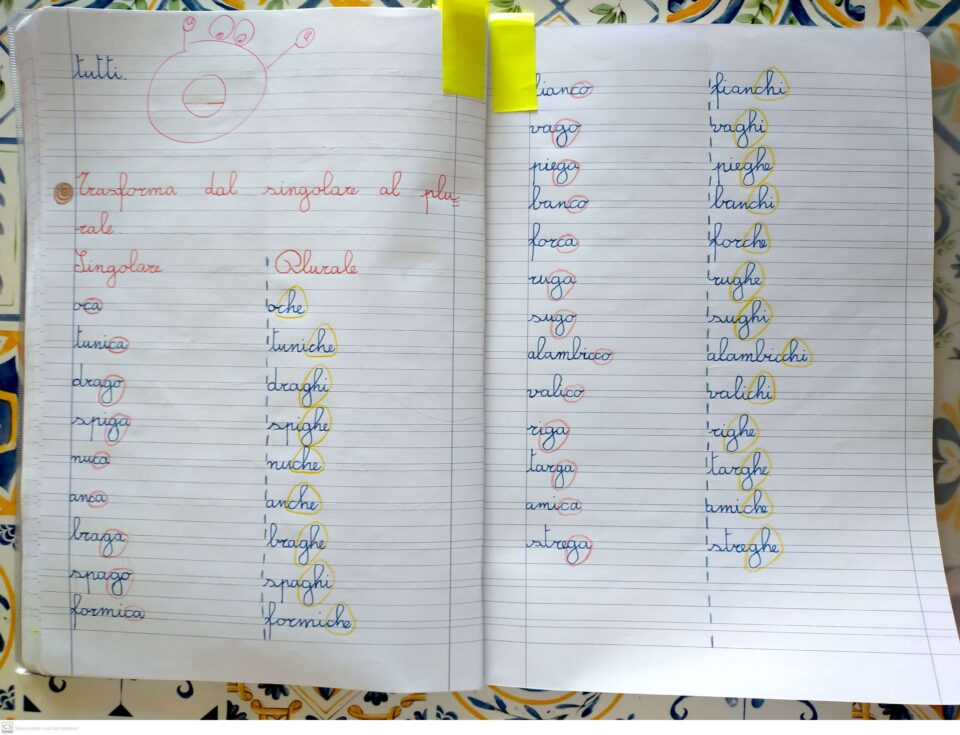 tutti.
Trasforma dal singolare al plu=
rale.
Singolare Plurale
oca oche
tunica tuniche
drago draghi
spiga spighe
nuca nuche
anca anche
braga braghe
spago spaghi
formica formiche
fianco fianchi
vago vaghi
piega pieghe
banco banchi
forca forche
ruga rughe
sugo sughi
alambicco alambicchi
valico valichi
riga righe
targa targhe
amica amiche
strega streghe
CS Scansionato con CamScanner